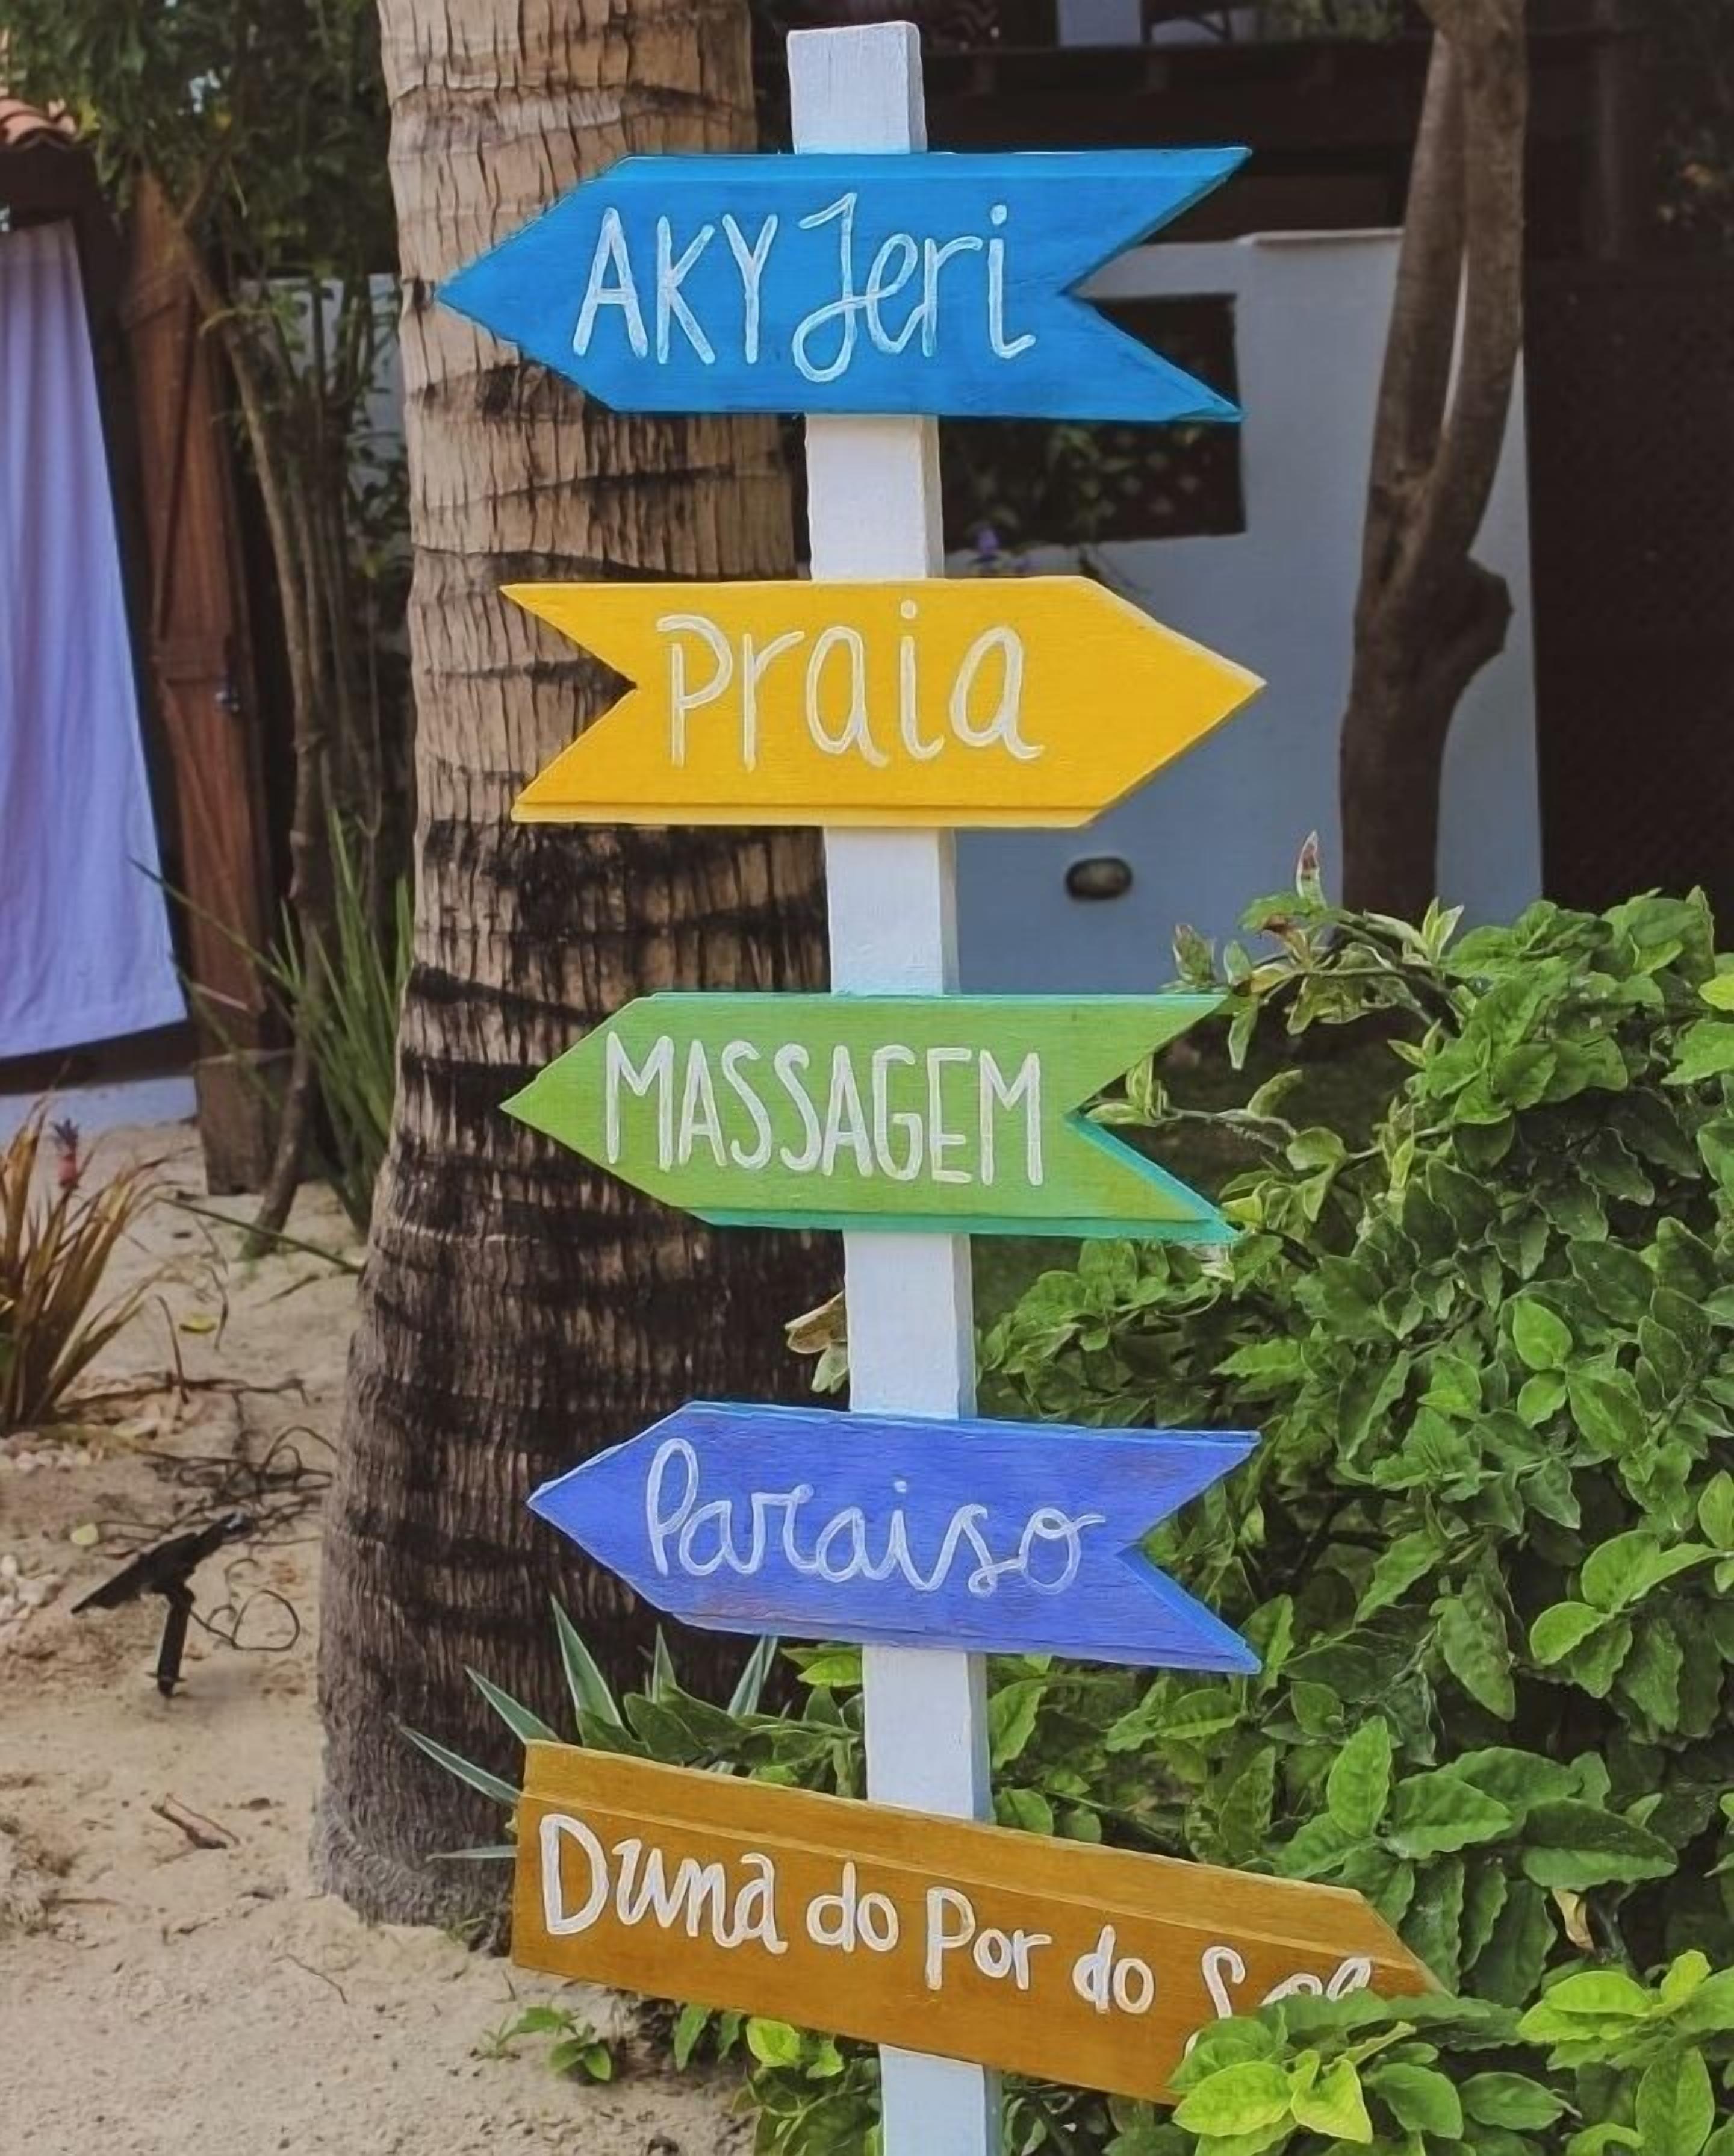 AKY Jeri
Praia
MASSAGEM
Paraiso
Duna do Por do Sol